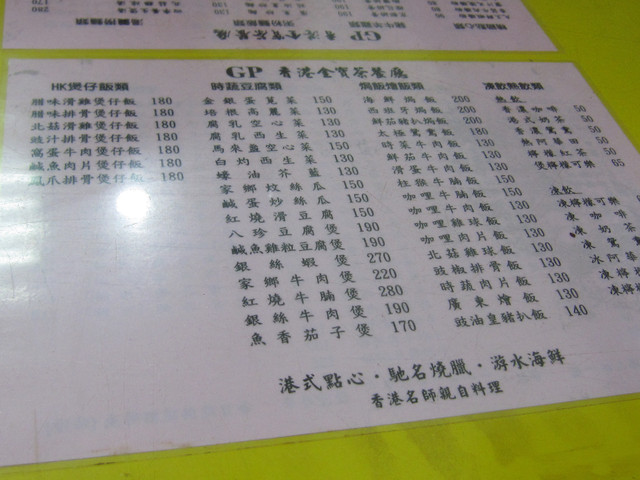 GP 香港金寶茶餐廳
HK煲仔飯類
腊味滑雞煲仔飯 180
腊味排骨煲仔飯 180
北菇滑雞煲仔飯 180
豉汁排骨煲仔飯 180
窩蛋牛肉煲仔飯 180
鹹魚肉片煲仔飯 180
鳳爪排骨煲仔飯 180
時蔬豆腐類
金銀蛋莧菜 150
培根高麗菜 130
腐乳空心菜 130
腐乳西生菜 130
馬來盞空心菜 150
白灼西生菜 130
蠔油芥藍 130
家鄉炆絲瓜 150
鹹蛋炒絲瓜 150
紅燒滑豆腐 150
八珍豆腐煲 190
鹹魚雞粒豆腐煲 190
銀絲蝦煲 270
家鄉牛肉煲 220
紅燒牛腩煲 280
銀絲牛肉煲 190
魚香茄子煲 170
焗飯燴飯類
海鮮焗飯 200
西班牙焗飯 200
鮮茄豬扒焗飯 200
太極鴛鴦飯 180
時菜牛肉飯 130
鮮茄牛肉飯 130
滑蛋牛肉飯 130
柱猴牛腩飯 150
咖哩牛腩飯 150
咖哩牛肉飯 130
咖哩雞球飯 130
咖哩肉片飯 130
北菇雞球飯 130
豉椒排骨飯 130
時蔬肉片飯 130
廣東燴飯 130
豉油皇豬扒飯 140
凍飲熱飲類
熱飲
香濃咖啡 50
港式奶茶 50
香濃鴛鴦 50
熱阿華田 50
檸檬紅茶 50
煲檸檬可樂 65
凍飲
凍檸檬可樂
凍咖啡
凍奶茶
凍鴛
冰阿華
凍檸檬
凍檸
港式點心·馳名燒臘·游水海鮮
香港名師親自料理